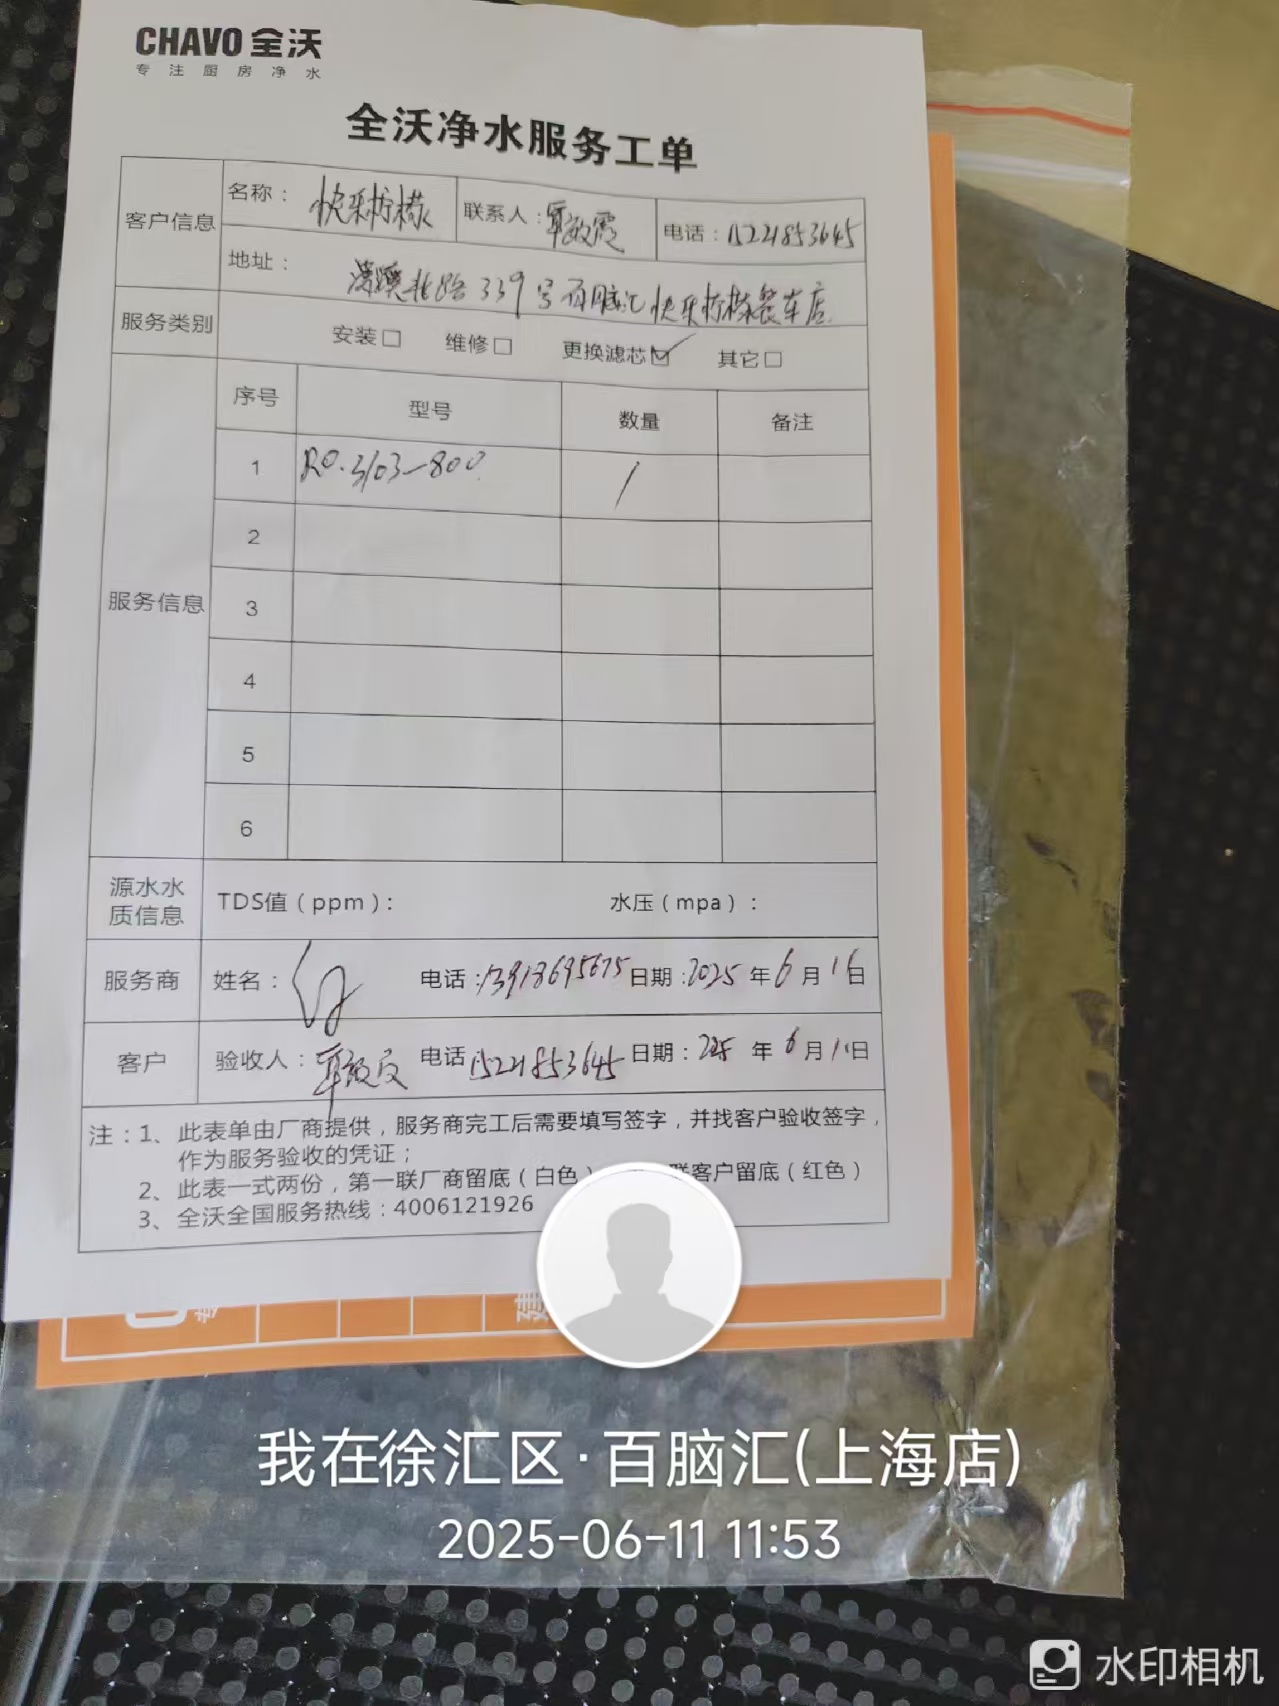 CHAVO 全沃
专注厨房净水
全沃净水服务工单
客户信息 名称：快乐柠檬 联系人：覃敏霞 电话：15221853645
地址：漕溪北路339号百脑汇快乐柠檬餐车店
服务类别 安装□ 维修□ 更换滤芯☑ 其它□
服务信息 序号 型号 数量 备注
1 RO.3103-800 1
2
3
4
5
6
源水水质信息 TDS值（ppm）： 水压（mpa）：
服务商 姓名： 电话：13918695675 日期：2025年6月16日
客户 验收人： 电话 15221853645 日期：225年6月11日
注：1、此表单由厂商提供，服务商完工后需要填写签字，并找客户验收签字，
作为服务验收的凭证；
2、此表一式两份，第一联厂商留底（白色） 联客户留底（红色）
3、全沃全国服务热线：4006121926
我在徐汇区·百脑汇(上海店)
2025-06-11 11:53
水印相机